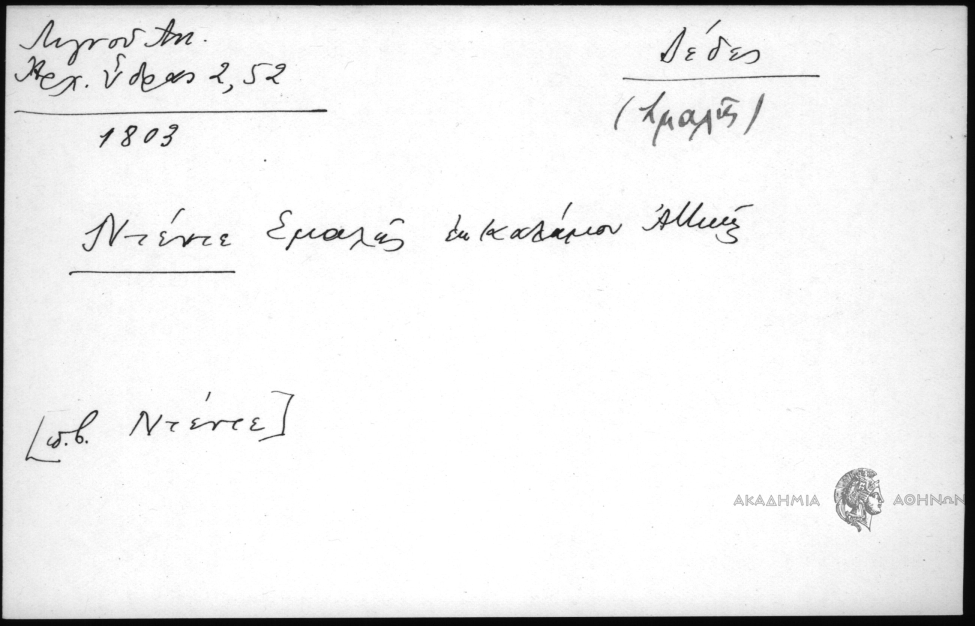 Λιγνού Αντ.
Αρχ. Ύδρας 2, 52
1803
Δέδες
(Σμαλής)
Ντέντε Σμαλής εκ Καλάμου Αττικής
[π.β. Ντέντε]
ΑΚΑΔΗΜΙΑ ΑΘΗΝΩΝ